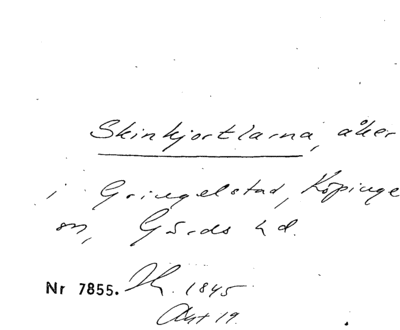 Skinkjortlarna, åker
i Gringelstad, Köpinge
sn, Gärds hd.
Nr 7855. 1845
Akt 19.